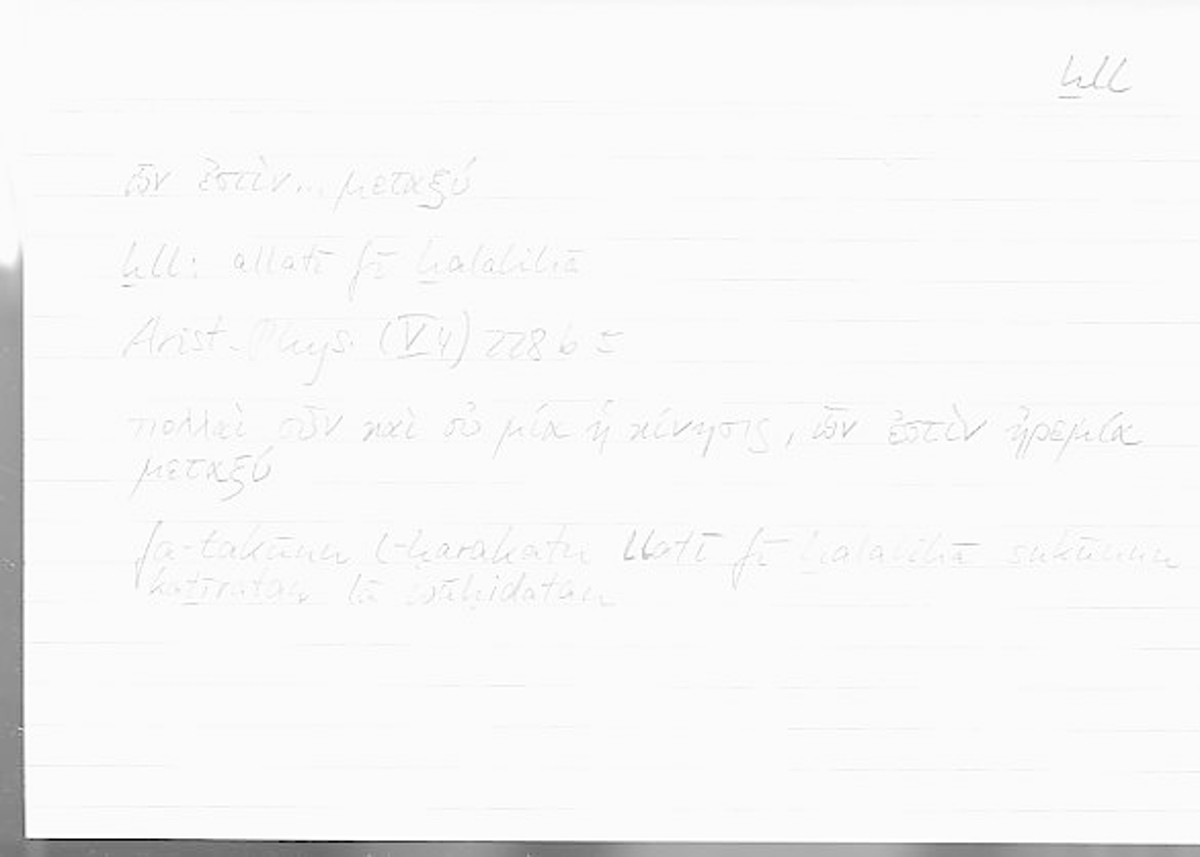 ḫll
ὧν ἐστὶν... μεταξύ
ḫll: allatī fī ḫalalihā
Arist. Phys. (V 4) 228 b 5
πολλαὶ οὖν καὶ οὐ μία ἡ κίνησις, ὧν ἐστὶν ἠρεμία
μεταξύ
fa-takūnu l-ḥarakatu llatī fī ḫalalihā sukūnun
kaṯīratan lā wāḥidatan